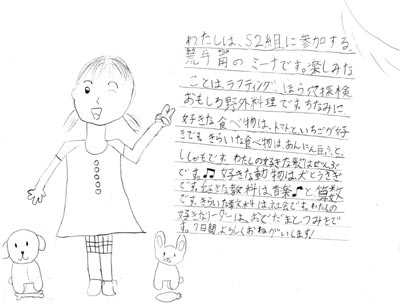 わたしは、S2組に参加する
のミーナです。楽しみな
ことは、ラフティング、ほら穴探検、
おもしろ野外料理です。ちなみに、
好きな食べ物は、トマトといちごが好
きです。きらいな食べ物は、あんにん豆ふと、
ししゃもです。わたしの好きな歌はぜんぶ
です。♫ 好きな動物は犬とうさぎ
です。好きな教科は音楽♪と算数
です。きらいな教科は社会です。わたしの
好きなリーダーは、
です。7日間よろしくおねがいします!